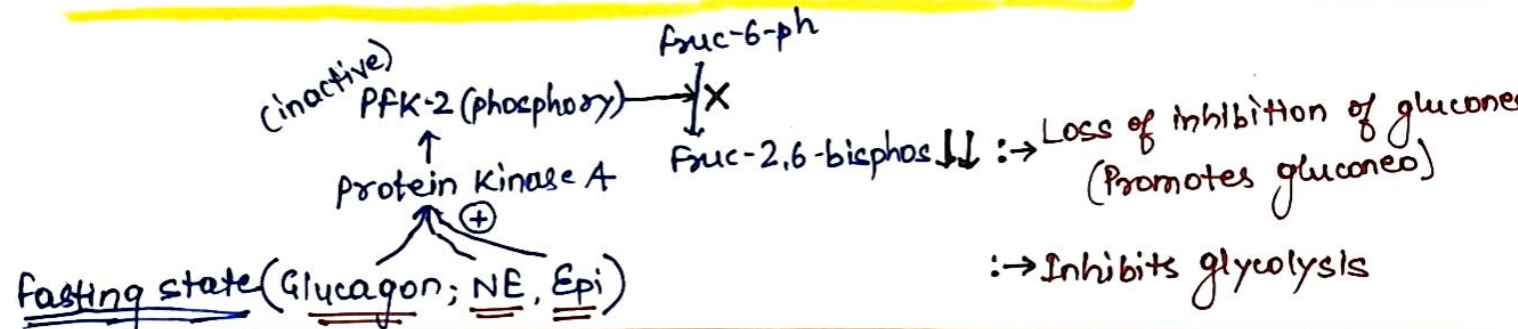 Fruc-6-ph
(inactive)
PFK-2 (phosphory) X
Fruc-2,6-bisphos ↓↓ :→ Loss of inhibition of glucone
(Promotes gluconeo)
Protein Kinase A
+
:→ Inhibits glycolysis
Fasting state (Glucagon; NE, Epi)